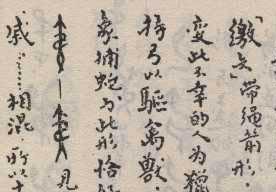 带绳箭形，
变此不幸的人为猎
持弓以驱禽兽，
象捕蛇 此形恰
见
戚……相混 所以